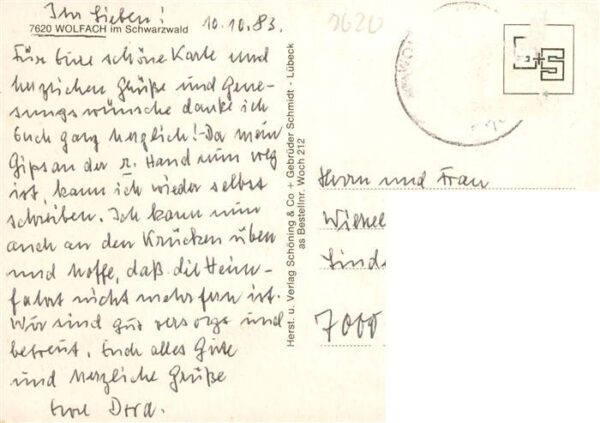 Ihr Lieben!
10.10.83.
7620 WOLFACH im Schwarzwald
Für Eure schöne Karte und
herzlichen Grüße und Gene-
sungswünsche danke ich
Euch ganz herzlich! Da mein
Gips an der r. Hand nun weg
ist, kann ich wieder selbst
schreiben. Ich kann nun
auch an den Krücken üben
und hoffe, daß die Heim-
fahrt nicht mehr fern ist.
Wir sind gut versorgt und
betreut. Euch alles Gute
und herzliche Grüße
Eure Dora.
Herst. u. Verlag Schöning & Co + Gebrüder Schmidt - Lübeck
as Bestellnr. Woch 212
7620
L+S
Herrn und Frau
7000